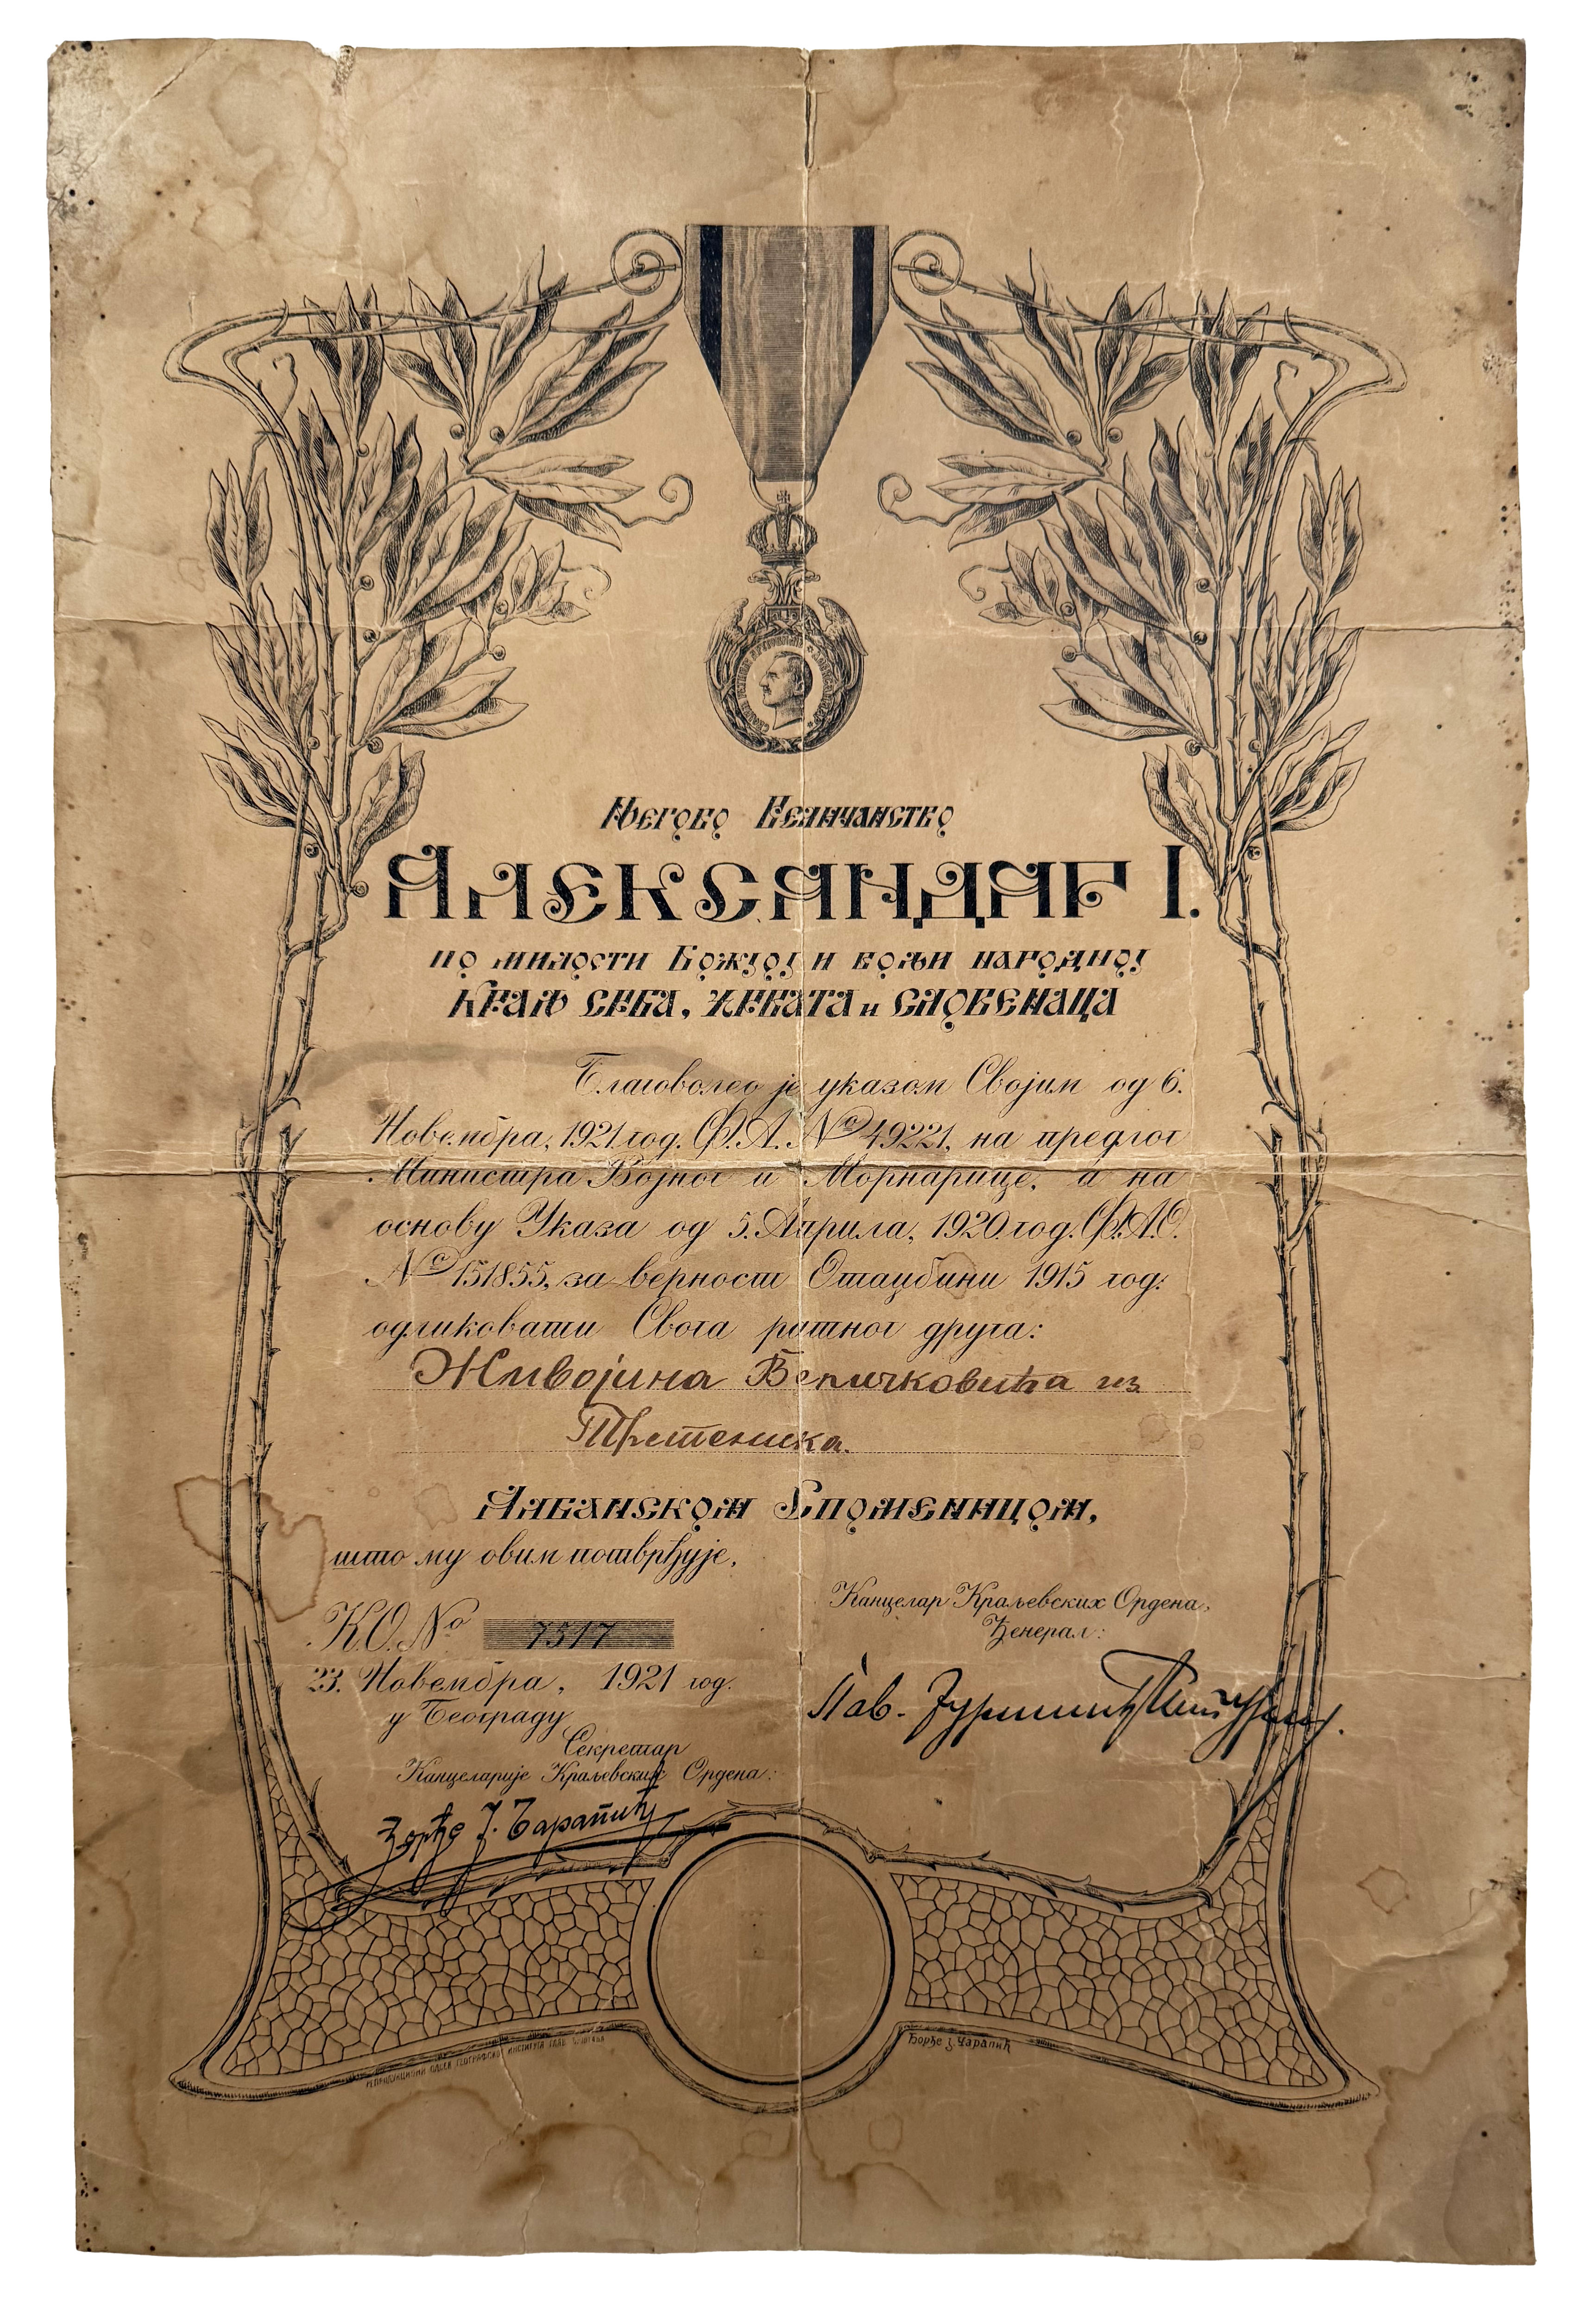 Његово Величанство
Александар I.
по милости Божјој и вољи народној
Краљ Срба, Хрвата и Словенаца
Благоволео је указом Својим од 6.
Новембра, 1921 год. Ф.А. № 49221, на предлог
Министра Војног и Морнарице, а на
основу Указа од 5. Априла, 1920 год. Ф.А.О.
№ 151855, за верност Отаџбини 1915 год.
одликовати Свога ратног друга:
Живојина Величковића из
Трстеника.
Албанском Споменицом,
што му овим потврђује,
К.О. № 7517
23. Новембра, 1921 год.
у Београду
Секретар
Канцеларије Краљевских Ордена:
Ђорђе Ј. Чарапић
Канцелар Краљевских Ордена,
Ђенерал:
Пав. Јуришић Штурм
Ђорђе Ј Чарапић